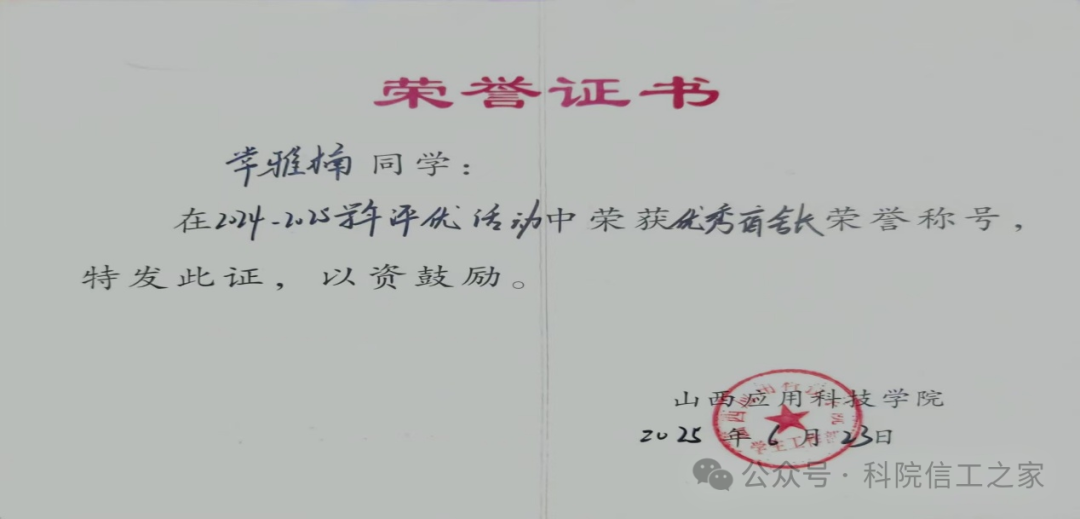 荣誉证书
毕雅楠同学：
在2024-2025学年评优活动中荣获优秀宿舍长荣誉称号，
特发此证，以资鼓励。
山西应用科技学院
2025年6月23日
公众号·科院信工之家